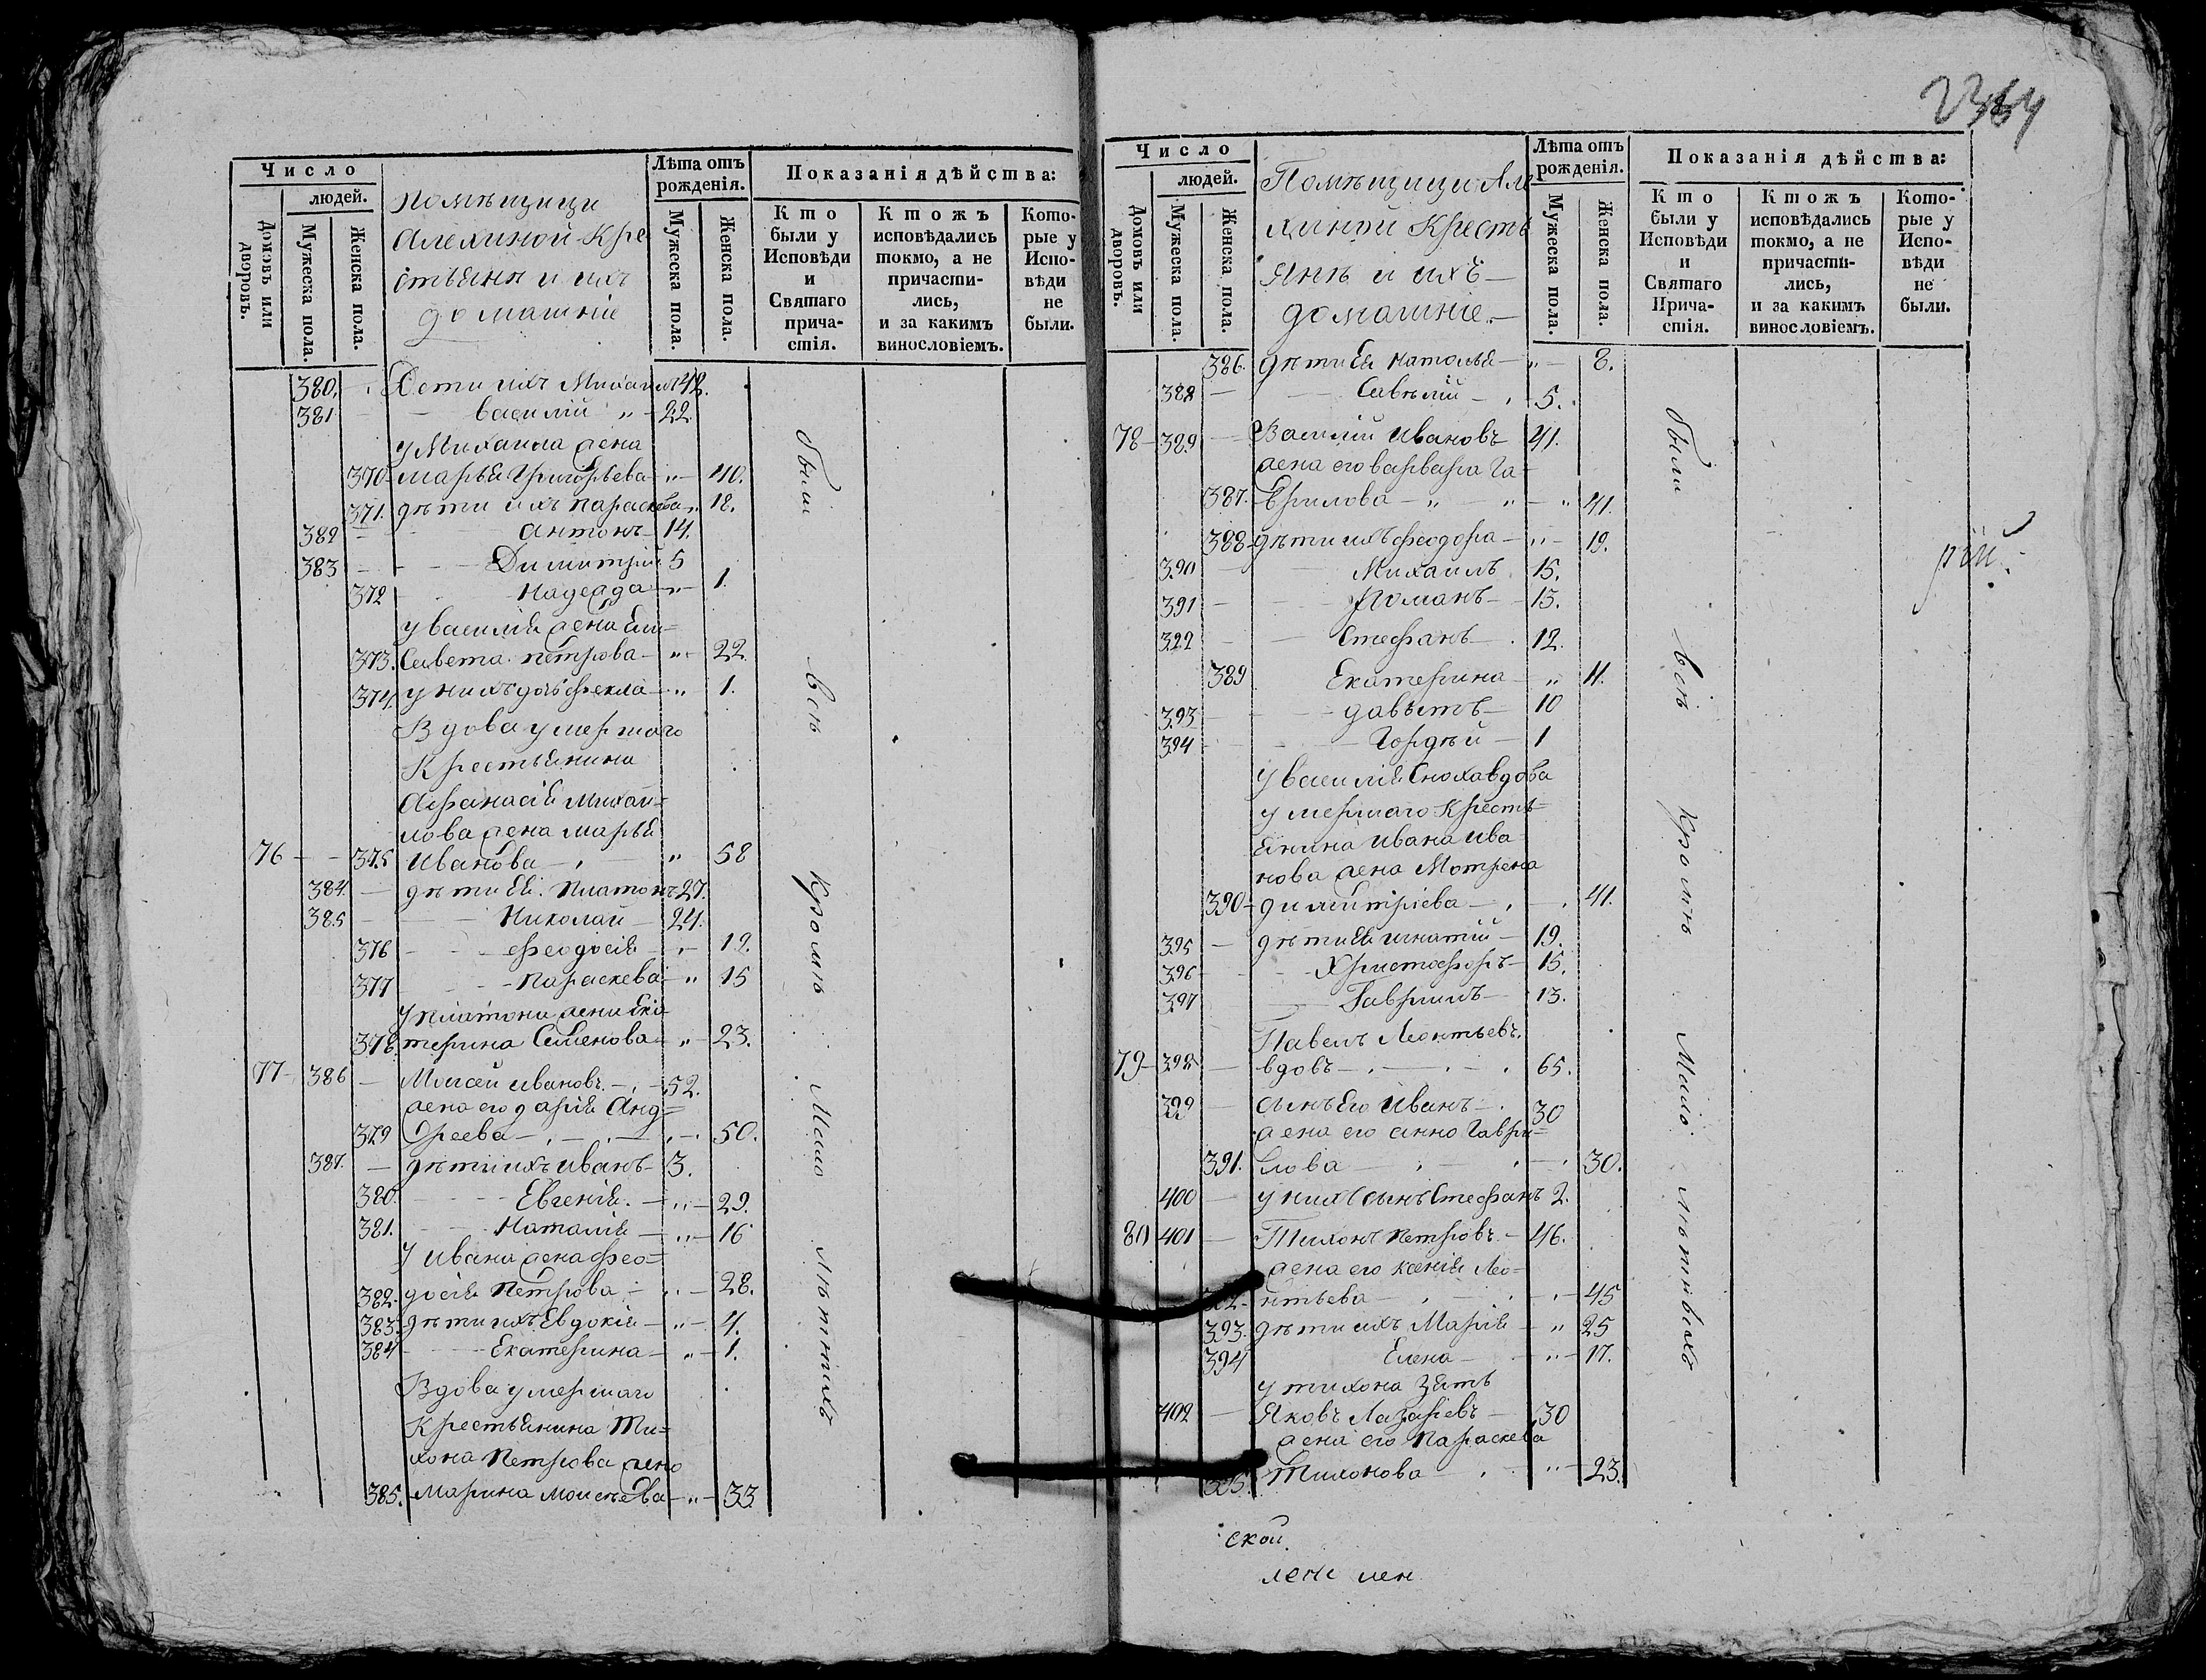 Число
людей.
Домовъ или дворовъ.
Мужеска пола.
Женска пола.
Помѣщицы
Алехиной Кре
стьяня и ихъ
домашніе
Лѣта отъ рожденія.
Мужеска пола.
Женска пола.
Показанія дѣйства:
Кто были у Исповѣди и Святаго причастія.
Ктожъ исповѣдались токмо, а не причастились, и за какимъ винословіемъ.
Которые у Исповѣди не были.
380. Дети ихъ Михаилъ 42.
381 Василий " 22
у Михаила жена
370 марья Григорьева " 40.
371. дѣти ихъ параскева " 18.
382 Антонъ 14.
383 Димитрий 5
372 Надежда " 1.
у василія жена Ели=
373. Савета петрова " 22
374. у нихъ дочь фекла " 1.
Вдова умершаго
Крестьянина
Афанасія Михаи=
лова жена марья
76 375 Иванова " 58
384. дѣти Ея Платонъ 27.
385 Николай 24.
376 Феодосія " 19.
377 Параскева " 15
у платона жена Ека
378. терина Семенова " 23.
77 386 Моисей ивановъ 52.
жена его дарія Анд=
379 реева 50.
387. дѣти ихъ иванъ 3.
380. Евгенія " 29.
381. Наталія " 16
у ивана жена фео=
382. досія Петрова " 28.
383. дѣти ихъ Евдокія " 4.
384 Екатерина " 1.
Вдова умершаго
Крестьянина Ти=
хона Петрова жена
385. Марина моисеева " 33
были всѣ Кромѣ Мало лѣтнихъ
2364
Число
людей.
Домовъ или дворовъ.
Мужеска пола.
Женска пола.
Помѣщицы Але
хиной Кресть
янѣ и ихъ
домашніе.
Лѣта отъ рожденія.
Мужеска пола.
Женска пола.
Показанія дѣйства:
Кто были у Исповѣди и Святаго Причастія.
Ктожъ исповѣдались токмо, а не причастились, и за какимъ винословіемъ.
Которые у Исповѣди не были.
386. дѣти Ея Наталья " 8.
388 Савѣлій 5.
78 389 Василій Ивановъ 41.
жена его варвара Га=
387. врилова " 41.
388 дѣти ихъ феодора " 19.
390 Михаилъ 15.
391 Романъ 15.
392 Стефанъ 12.
389 Екатерина " 11.
393 давыдъ 10
394 Гордѣй 1
у василія Сноха вдова
умершаго Кресть=
янина Ивана Ива
нова жена Мотрена
390 димитріева 41.
395 дѣти Ея игнатій 19.
396 Христофоръ 15.
397 Гавріилъ 13.
Павелъ Леонтьевъ.
79 398 вдовъ 65.
399 сынъ Его Иванъ 30
жена его анна Гаври=
391. лова 30.
400 у нихъ сынъ Стефанъ 2.
80 401 Тихонъ Петровъ 46.
жена его ксенія Лео=
нтьева 45
393. дѣти ихъ Марія " 25
394 Елена " 17.
у тихона зять
402 Яковъ Лазаревъ 30
жена его Параскева
395. Тихонова " 23.
были всѣ Кромѣ Мало лѣтнихъ
рей
ской